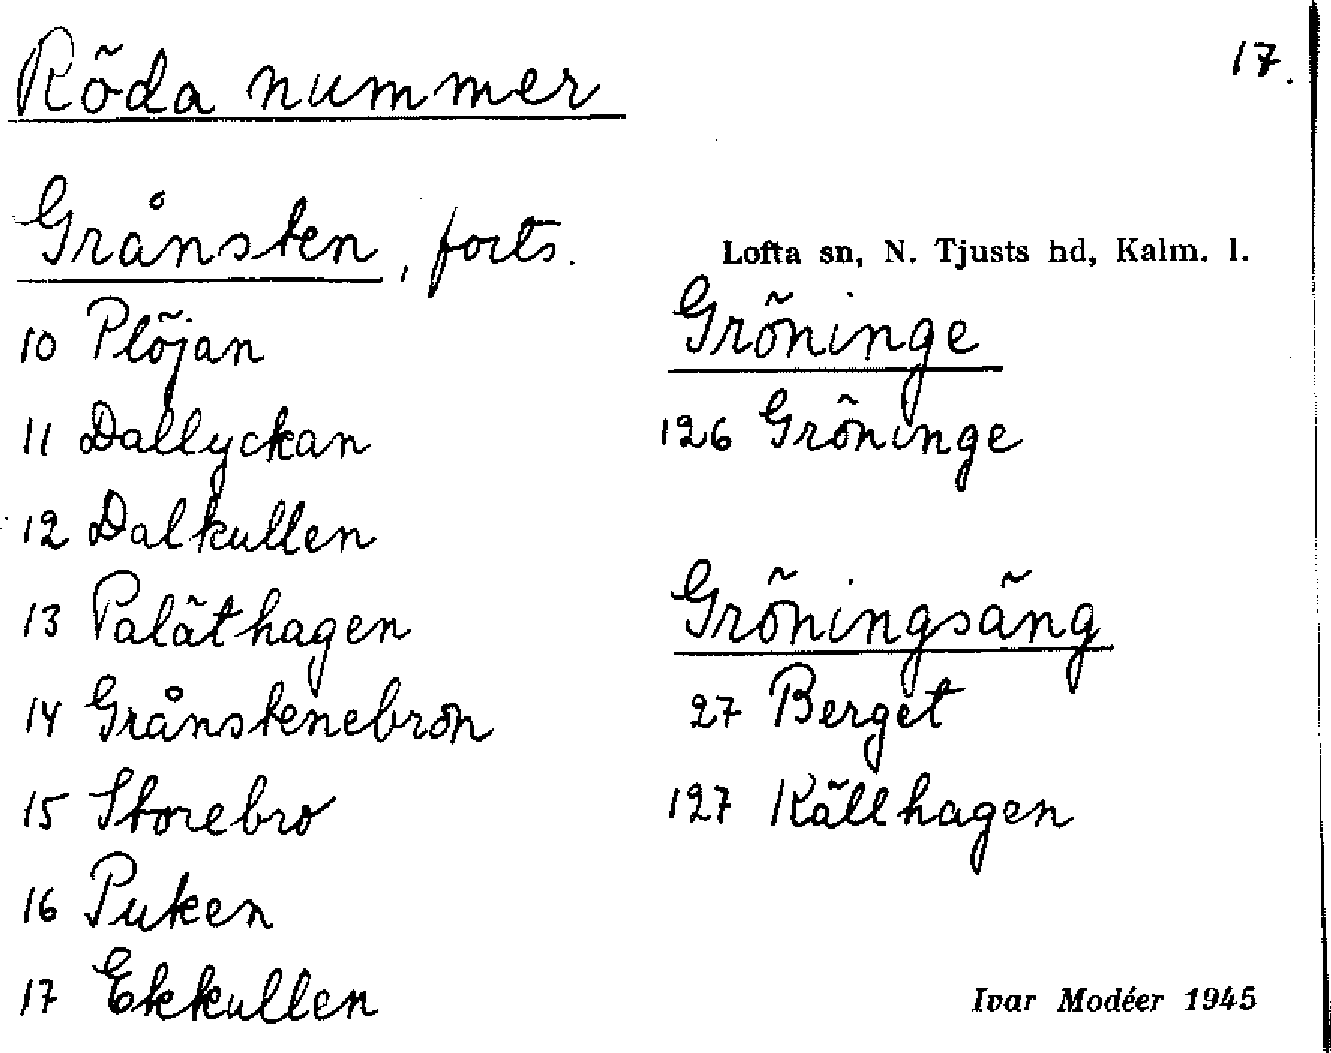 17.
Röda nummer
Grånsten, forts.
10 Plöjan
11 Dallyckan
12 Dalkullen
13 Paläthagen
14 Grånstenebron
15 Storebro
16 Puken
17 Ekkullen
Lofta sn, N. Tjusts hd, Kalm. l.
Gröninge
126 Gröninge
Gröningsäng
27 Berget
127 Källhagen
Ivar Modéer 1945